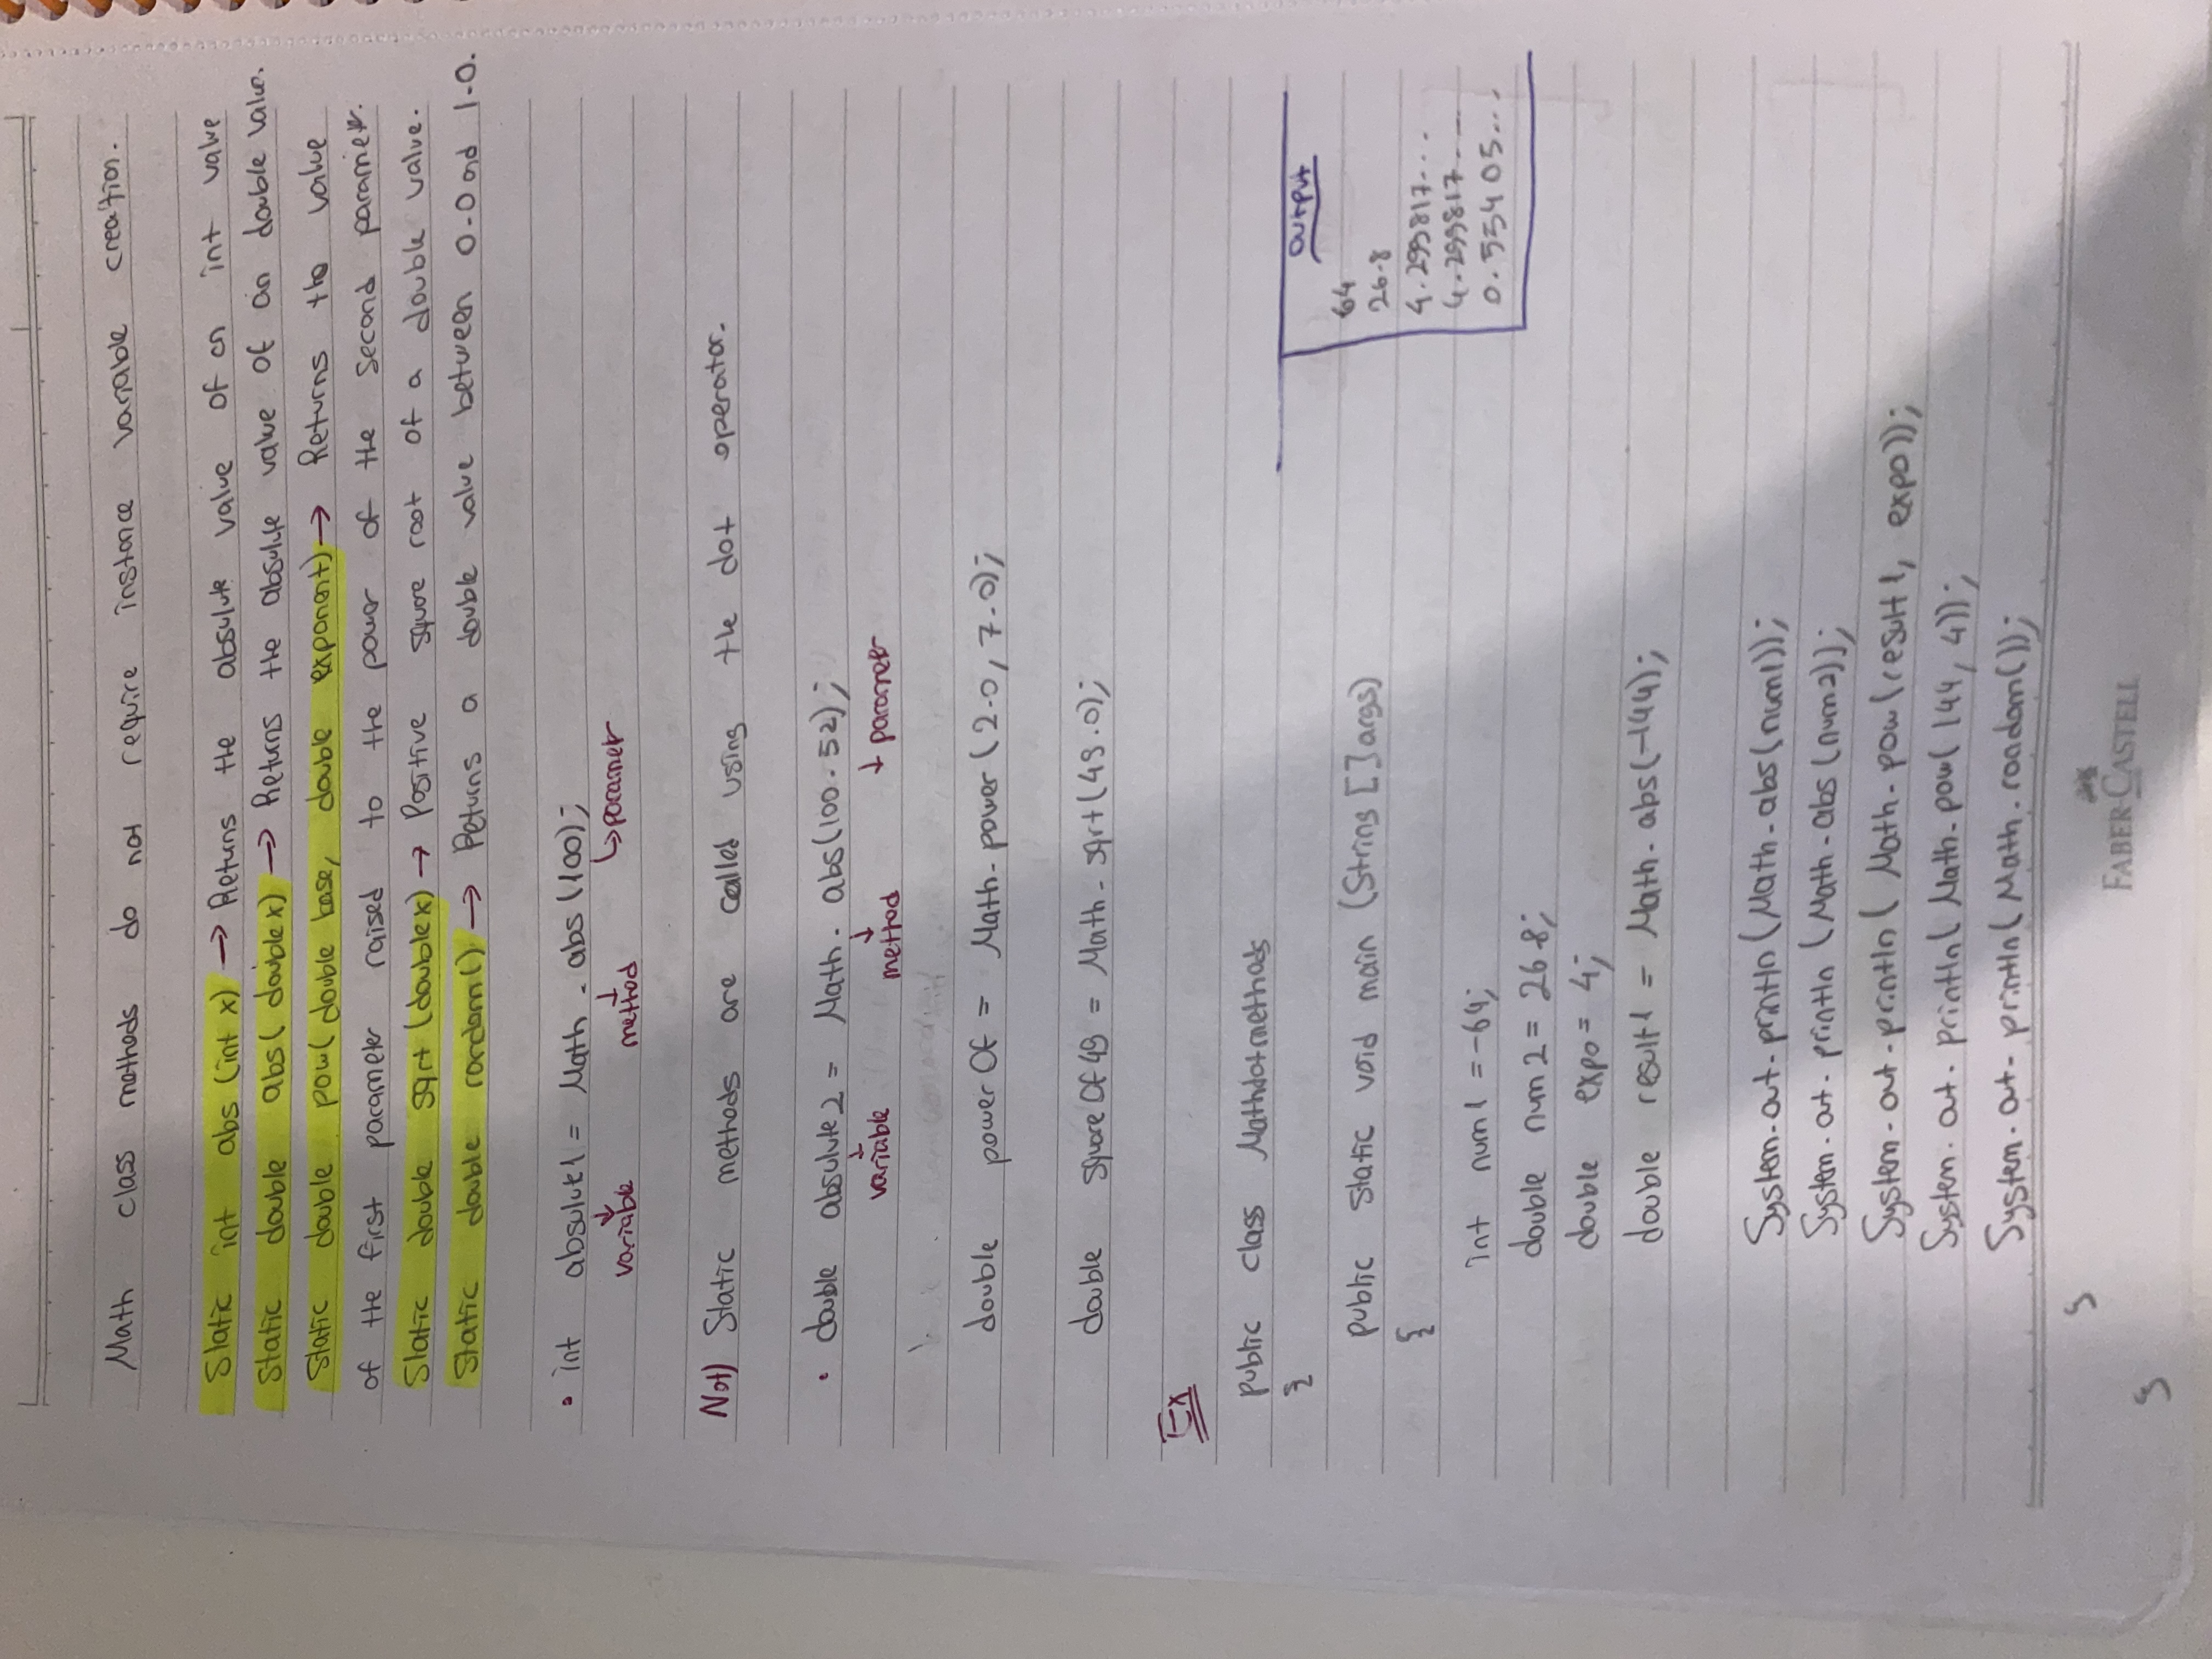 Math class methods do not require instance variable creation.
Static int abs (int x) → Returns the absolute value of an int value
Static double abs( double x) → Returns the absolute value of an double value.
Static double pow( double base, double exponent) → Returns the value
of the first parameter raised to the power of the second parameter.
Static double sqrt (double x) → Positive square root of a double value.
Static double random() → Returns a double value between 0.0 and 1.0.
• int absolute1 = Math.abs (100);
variable method parameter
Not) Static methods are called using the dot operator.
• double absolute2 = Math.abs(100.52);
variable method parameter
double powerOf = Math.power (2.0, 7.0);
double squareOf49 = Math.sqrt(49.0);
Ex
public class Mathdotmethods
{
public static void main (String [] args)
{
int num1 = -64;
double num2 = 26.8;
double expo = 4;
double result1 = Math.abs(-144);
System.out.println (Math.abs(num1));
System.out.println (Math.abs (num2));
System.out.println( Math.pow (result1, expo));
System.out.println( Math.pow( 144, 4));
System.out.println( Math.random());
}
}
output
64
26.8
4.299817...
4.299817...
0.55405...
FABER-CASTELL